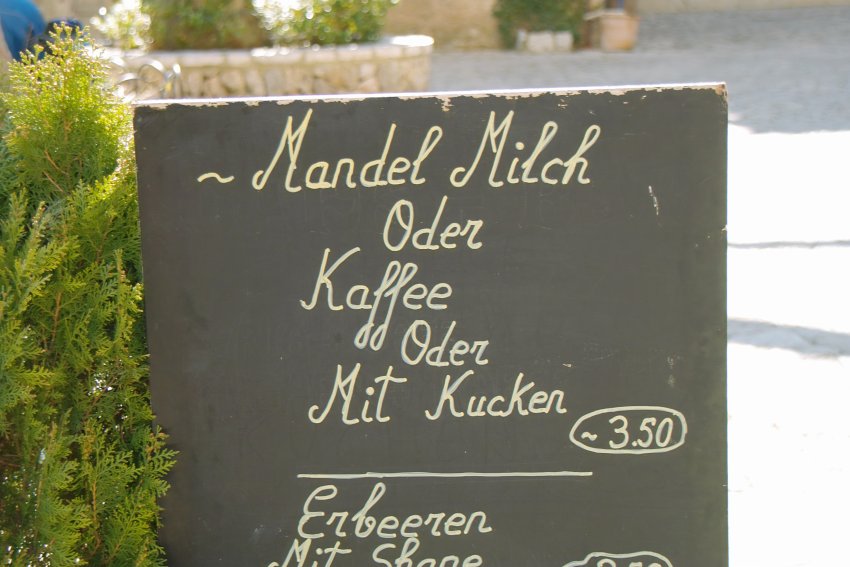 ~ Mandel Milch
Oder
Kaffee
Oder
Mit Kucken
~ 3.50
Erbeeren
Mit Shane